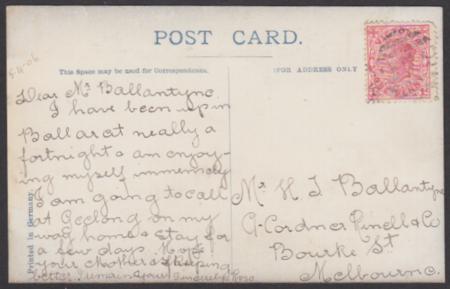 5-11-06
POST CARD.
This Space may be used for Correspondence.
(FOR ADDRESS ONLY
Dear Mr Ballantyne
I have been up in
Ballarat neally a
fortnight & am enjoy-
ing myself immensely
I am going to call
at Geelong on my
way home & stay for
a few days. Hope
your Mother is keeping
better. I remain yours Sincerely
Mr H J Ballantyne
Bourke St
Melbourne.
Printed in Germany.